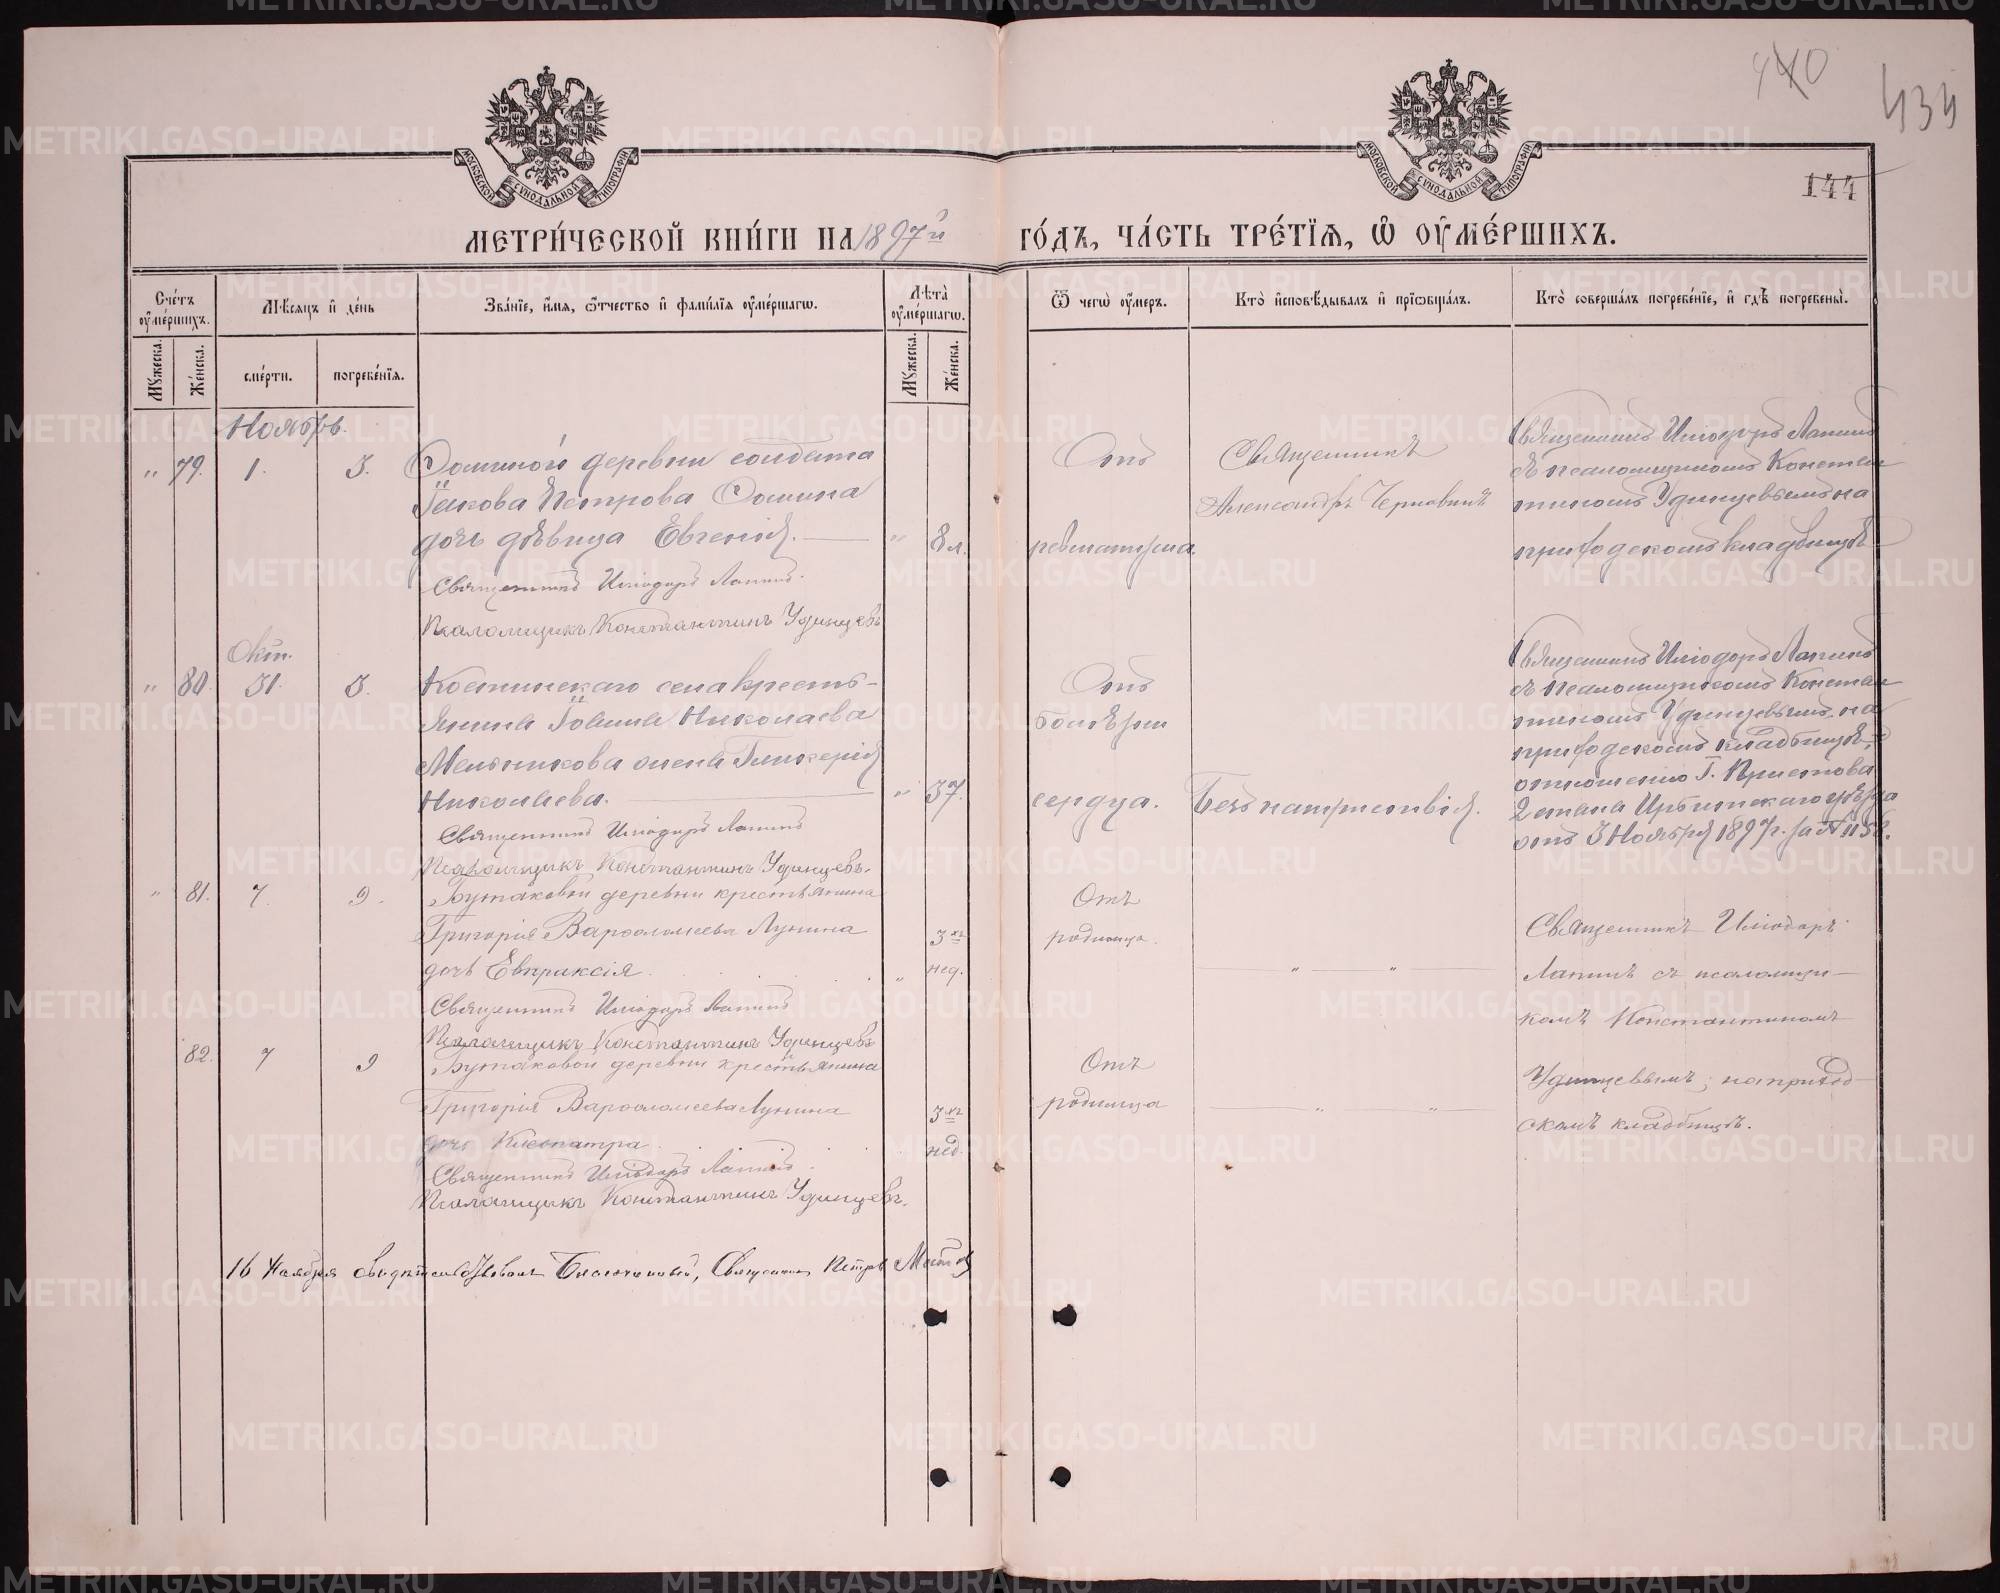 440
434
144
МОСКОВСКОЙ СѴНОДАЛЬНОЙ ТИПОГРАФІИ
МОСКОВСКОЙ СѴНОДАЛЬНОЙ ТИПОГРАФІИ
МЕТРИ́ЧЕСКОЙ КНИ́ГИ НА 1897й ГО́ДЪ, ЧА́СТЬ ТРЕ́ТІѦ, Ѡ ОУ҆МЕ́РШИХЪ.
Сче́тъ оу҆ме́ршихъ.
Мꙋжеска.
Же́нска.
Мѣ́сѧцъ и҆ де́нь
сме́рти.
погребе́нїѧ.
Зва́нїе, и҆́мѧ, ѻ҆́тчество и҆ фами́лїѧ оу҆ме́ршагѡ.
Лѣ́та оу҆ме́ршагѡ.
Мꙋжеска.
Же́нска.
Ѿ чегѡ̀ оу҆́меръ.
Кто̀ и҆сповѣ́дывалъ и҆ прїѡбща́лъ.
Кто̀ соверша́лъ погребе́нїе, и҆ гдѣ̀ погребены̀.
Ноябрь.
" 79. 1. 3.
Сониной деревни солдата
Іакова Петрова Сонина
дочь дѣвица Евгенія. " 8 л.
Священникъ Иліодоръ Лапинъ.
Псаломщикъ Константинъ Удинцевъ
Отъ
ревматизма.
Священникъ
Александръ Чернавинъ
Священникъ Иліодоръ Лапинъ
съ псаломщикомъ Констан
тиномъ Удинцевымъ на
приходскомъ кладбищѣ
Окт.
" 80. 31. 3.
Костинскаго села кресть-
янина Іоанна Николаева
Мельникова жена Гликерія
Николаева. " 37.
Священникъ Иліодоръ Лапинъ
Псаломщикъ Константинъ Удинцевъ.
Отъ
болѣзни
сердца.
Безъ напутствія.
Священникъ Иліодоръ Лапинъ
съ псаломщикомъ Констан
тиномъ Удинцевымъ на
приходскомъ кладбищѣ,
отношенію Г. Пристава
2 стана Ирбитскаго уѣзда
отъ 3 Ноября 1897 г. за № 1158.
" 81. 7. 9.
Бутаковой деревни крестьянина
Григорія Варѳоломеева Лунина
дочь Евпраксія " 3хъ нед.
Священникъ Иліодоръ Лапинъ
Псаломщикъ Константинъ Удинцевъ
Отъ
родимца.
" "
Священникъ Иліодоръ
Лапинъ съ псаломщи-
комъ Константиномъ
Удинцевымъ, на приход-
скомъ кладбищѣ.
82. 7 9
Бутаковой деревни крестьянина
Григорія Варѳоломеева Лунина
дочь Клеопатра 3хъ нед.
Священникъ Иліодоръ Лапинъ
Псаломщикъ Константинъ Удинцевъ.
Отъ
родимца
" "
16 Ноября свидѣтельствовалъ Благочинный, Священникъ Петръ